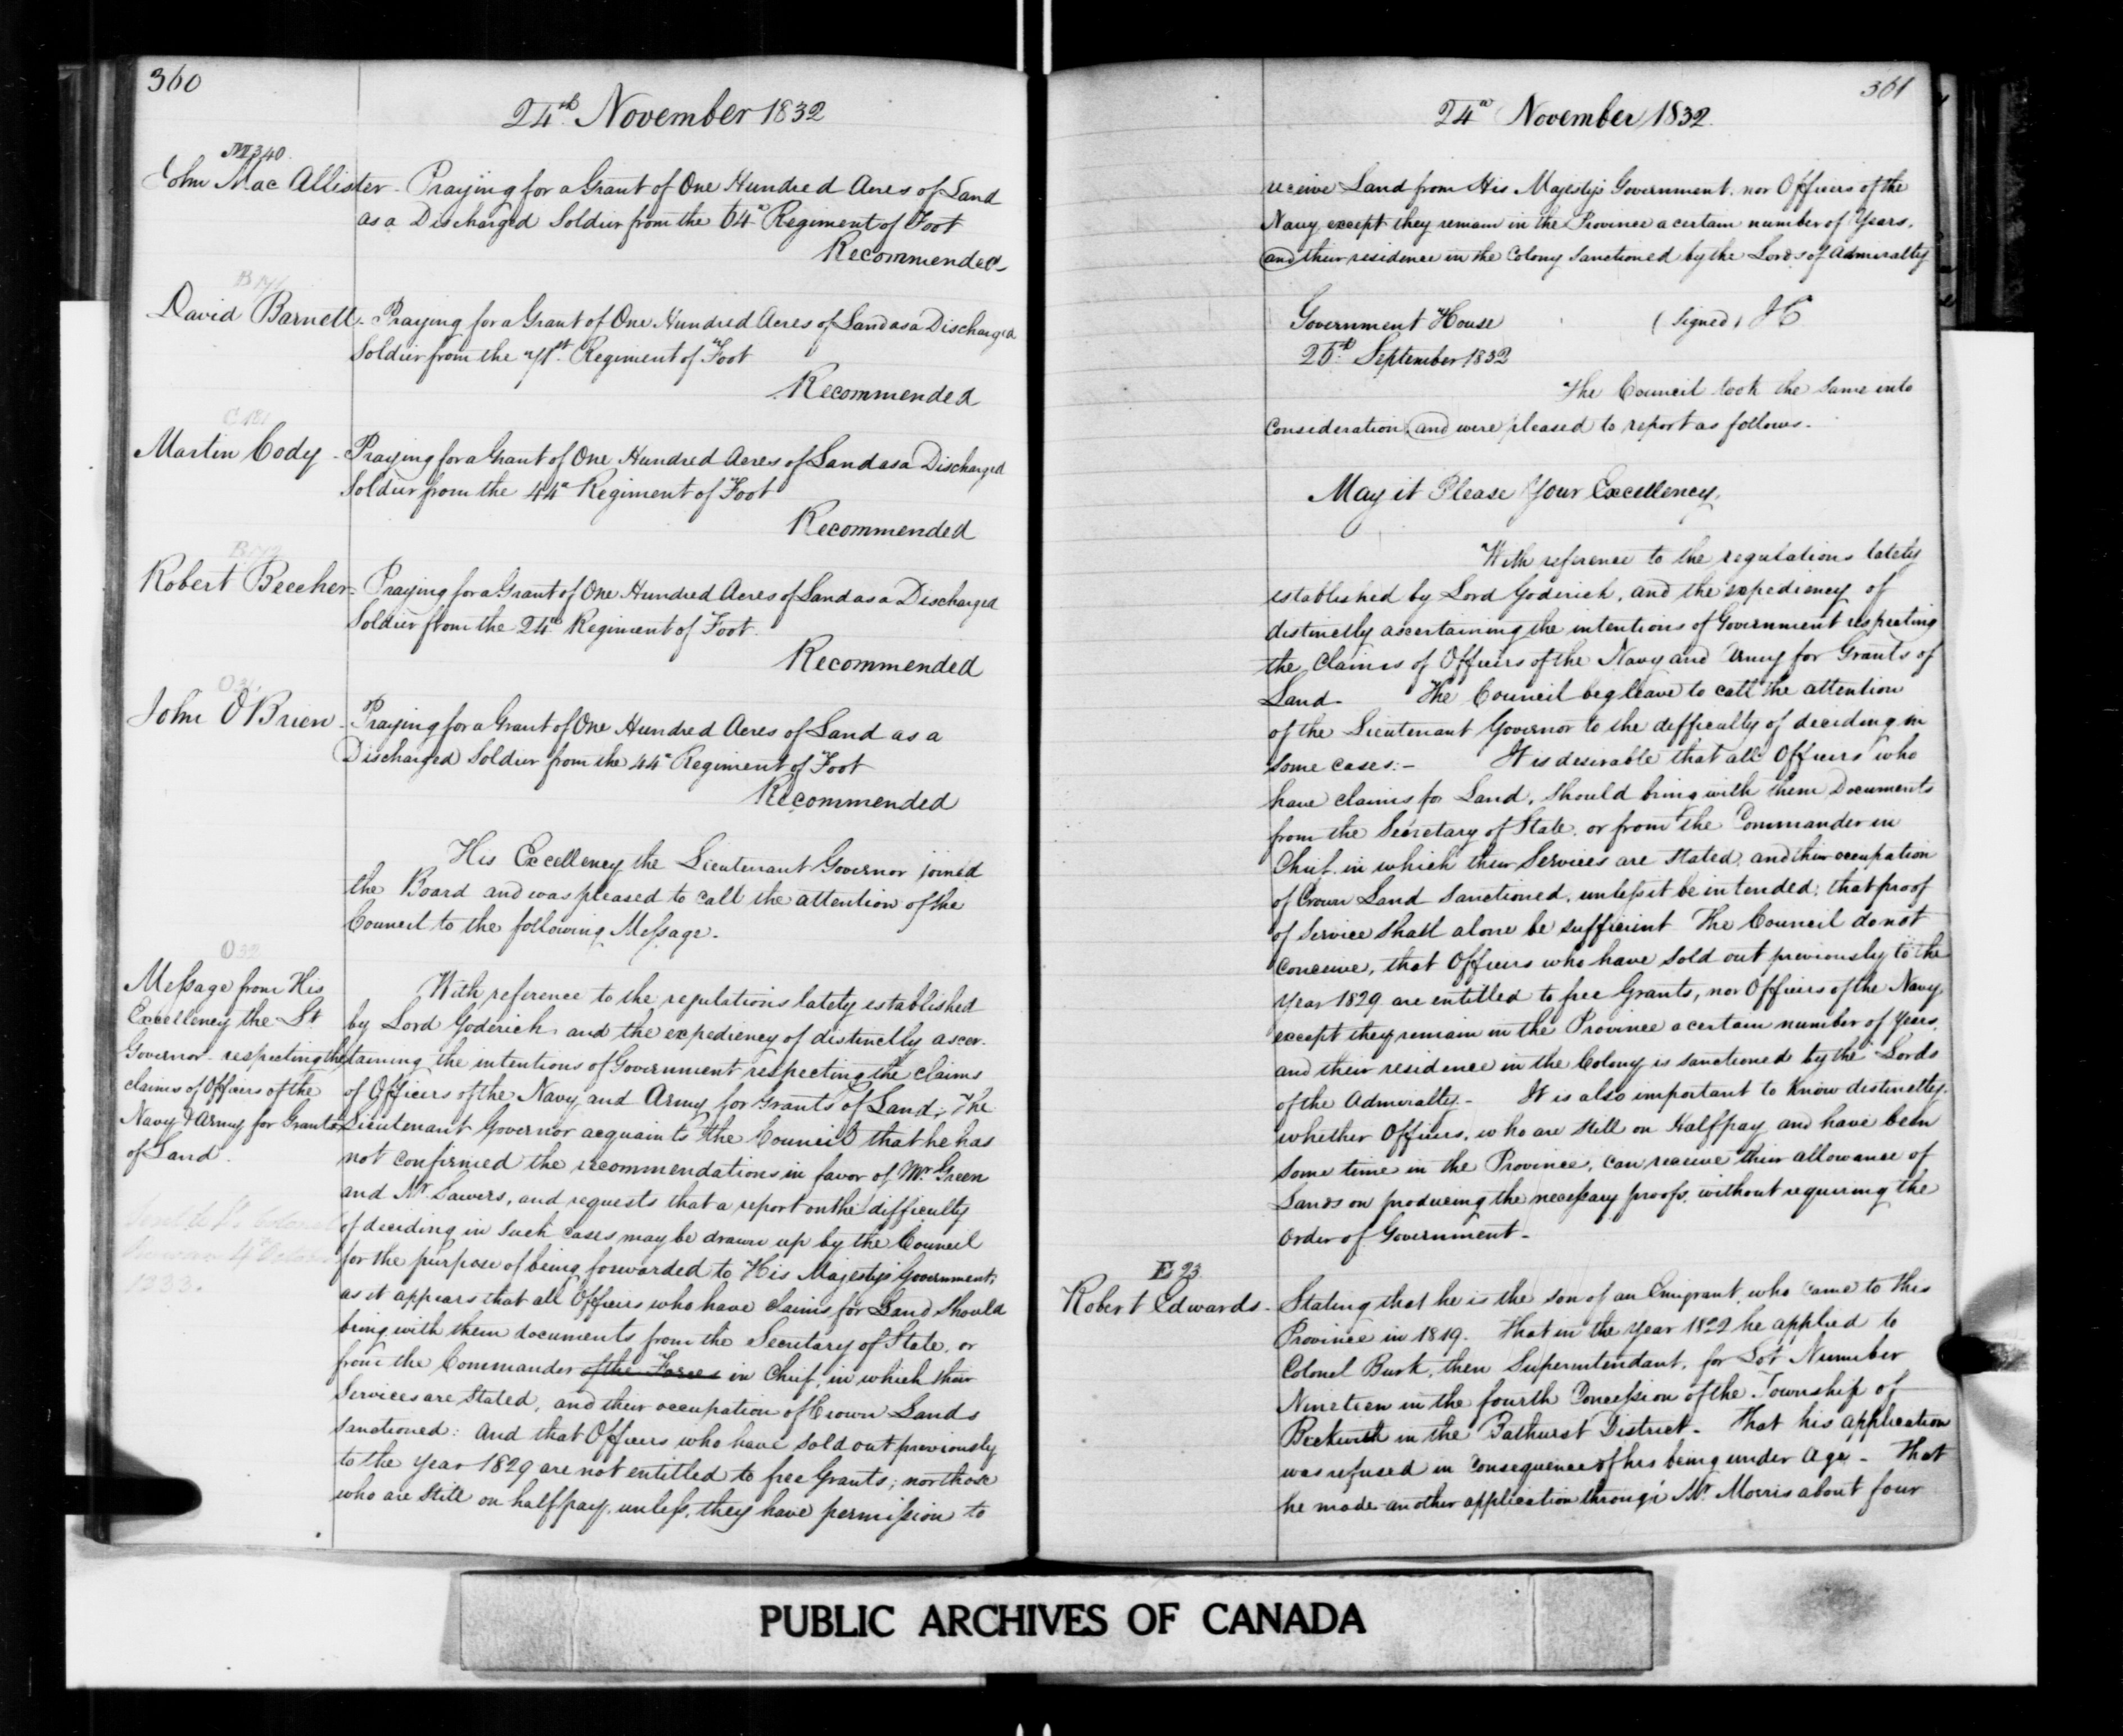 360
24th. November 1832
M340.
John Mac Allister - Praying for a Grant of One Hundred Acres of Land
as a Discharged Soldier from the 64th Regiment of Foot
Recommended
B171
David Barnett - Praying for a Grant of One Hundred Acres of Land as a Discharged
Soldier from the 71st. Regiment of Foot
Recommended
C181
Martin Cody - Praying for a Grant of One Hundred Acres of Land as a Discharged
Soldier from the 44th Regiment of Foot
Recommended
B172
Robert Beecher - Praying for a Grant of One Hundred Acres of Land as a Discharged
Soldier from the 24th Regiment of Foot.
Recommended
John O'Brien - Praying for a Grant of One Hundred Acres of Land as a
Discharged Soldier from the 44th Regiment of Foot
Recommended
His Excellency the Lieutenant Governor joined
the Board and was pleased to call the attention of the
Council to the following Message.
Message from His
Excellency the Lt
Governor - respecting the
claims of Officers of the
Navy & Army for Grants
of Land.
With reference to the regulations lately established
by Lord Goderich, and the expediency of distinctly ascer-
taining the intentions of Government respecting the claims
of Officers of the Navy and Army for Grants of Land; The
Lieutenant Governor acquaints the Council that he has
not confirmed the recommendations in favor of Mr. Green
and Mr. Sawers, and requests that a report on the difficulty
of deciding in such cases may be drawn up by the Council
for the purpose of being forwarded to His Majesty's Government;
as it appears that all Officers who have claims for Land should
bring with them documents from the Secretary of State, or
from the Commander of the Forces in Chief, in which their
Services are stated, and their occupation of Crown Lands
sanctioned: And that Officers who have sold out previously
to the year 1829 are not entitled to free Grants; nor those
who are still on half pay, unless, they have permission to
4th October
1833.
361
24th November 1832.
receive Land from His Majesty's Government. nor Officers of the
Navy except they remain in the Province a certain number of Years,
and their residence in the Colony Sanctioned by the Lords of Admiralty
Government House (Signed) JC
25th. September 1832
The Council took the same into
consideration, and were pleased to report as follows -
May it Please Your Excellency,
With reference to the regulations lately
established by Lord Goderich, and the expediency of
distinctly ascertaining the intentions of Government respecting
the Claims of Officers of the Navy and Army for Grants of
Land - The Council beg leave to call the attention
of the Lieutenant Governor to the difficulty of deciding in
some cases: - It is desirable that all Officers who
have claims for Land, should bring with them Documents
from the Secretary of State, or from the Commander in
Chief in which their Services are stated, and their occupation
of Crown Land sanctioned, unless it be intended, that proof
of Service shall alone be sufficient The Council do not
conceive, that Officers who have sold out previously to the
Year 1829 are entitled to free Grants, nor Officers of the Navy
except they remain in the Province a certain number of Years,
and their residence in the Colony is sanctioned by the Lords
of the Admiralty - It is also important to know distinctly
whether Officers, who are still on Half pay and have been
some time in the Province, can receive their allowance of
Lands on producing the necessary proofs, without requiring the
order of Government -
E 23
Robert Edwards - Stating that he is the son of an Emigrant, who came to this
Province in 1819. That in the Year 1822 he applied to
Colonel Burk, then Superintendant, for Lot Number
Nineteen in the fourth Concession of the Township of
Beckwith in the Bathurst District - That his application
was refused in consequence of his being under Age - That
he made another application through Mr. Morris about four
PUBLIC ARCHIVES OF CANADA